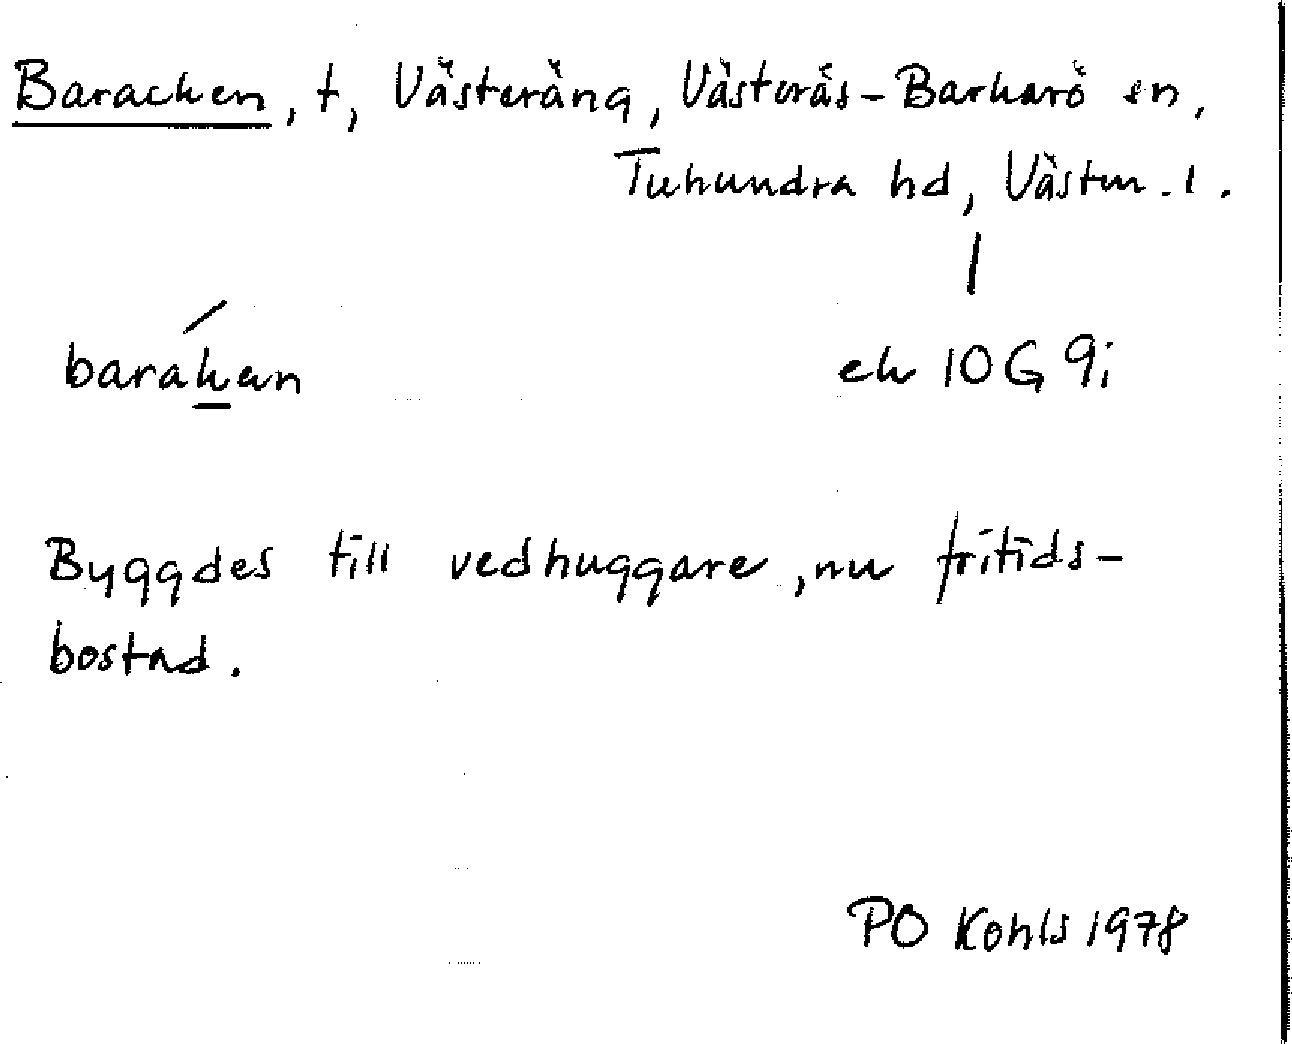 Baracken, t, Västeräng, Västerås-Barkarö sn,
Tuhundra hd, Västm. l.
baraken
ek 10G 9i
Byggdes till vedhuggare, nu fritids-
bostad.
PO Kohls 1978